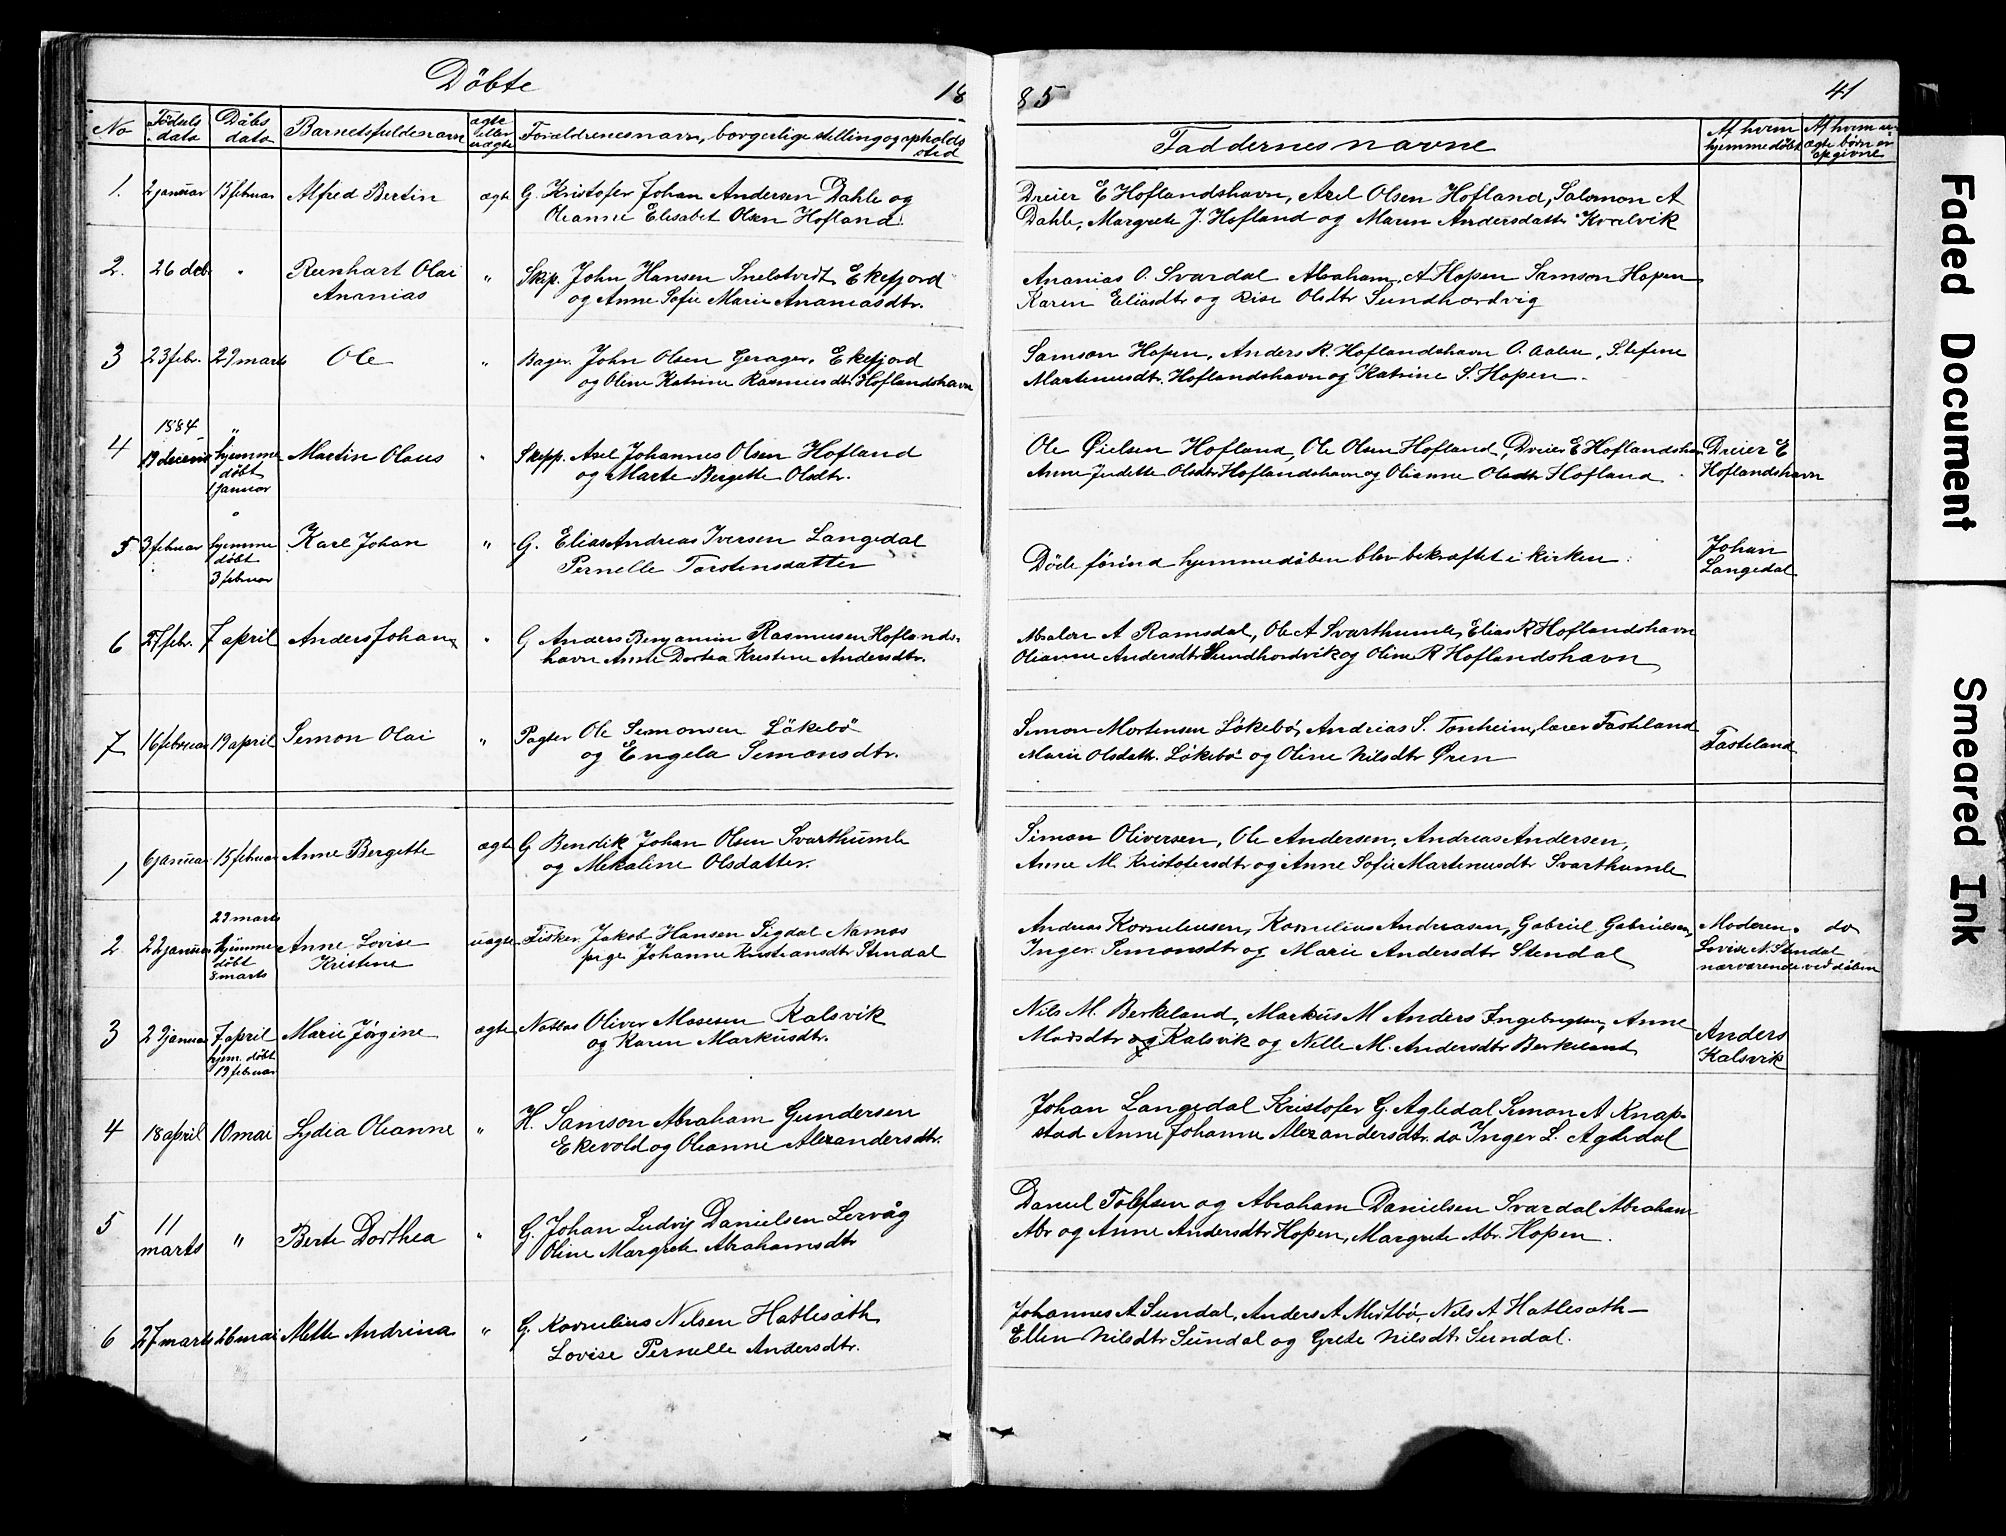 Döbte 1885 41
No Födsels data Dåbs data Barnets fulde navn ægte eller uægte Forældrenes navn, borgerlige stilling og opholds sted Faddernes navne Af hvem hjemmedøbt Af hvem uægte børn er opgivne
1. 2 januar 15 februar Alfred Bertin ægte G. Kristofer Johan Andersen Dahle og
Oleanne Elisabet Olsen Hofland.
Dreier E Hoflandshavn, Axel Olsen Hofland, Salomon A
Dahle, Margrete J. Hofland og Maren Andersdattr Kvalvik
2. 26 deb. " Reinhart Olai
Ananias
" Skip. John Hansen Snelstvedt Ekefjord
og Anne Sofie Marie Ananiasdtr.
Ananias O. Svardal Abraham A Hopen Samson Hopen
Karen Eliasdtr og Rise Olsdtr Sundhordvig
3 23 febr. 29 marts Ole " Bager. John Olsen Gerager. Ekefjord
og Oline Katrine Rasmusdtr Hoflandshavn
Samson Hopen, Anders R. Hoflandshavn O. Aalen, Stefine
Martenusdtr. Hoflandshavn og Katrine S. Hopen.
4 1884
19 decemb "
hjemme
døbt
1 januar
Martin Olaus " Skipp. Axel Johannes Olsen Hofland
og Marte Bergette Olsdtr.
Ole Øielsen Hofland, Ole Olsen Hofland, Dreier E Hoflandshavn
Anne Judette Olsdtr Hoflandshavn og Olianne Olsdtr Hofland
Dreier E
Hoflandshavn
5 3 februar hjemme
døbt
3 februar
Karl Johan " G. Elias Andreas Iversen Langedal
Pernelle Torstensdatter
Døde førind hjemmedøben blev bekræftet i kirken.
Johan
Langedal
6 27 feb. 7 april Anders Johan " G Anders Benjamin Rasmusen Hoflands-
havn Anne Dortea Kristine Andersdtr.
Abalon A Ramsdal, Ole A Svarthumle, Elias R Hoflandshavn
Olianne Andersdtr Sundhordvik og Oline R Hoflandshavn
7 16 februar 19 april Simon Olai " Pagter Ole Simonsen Lökebö
og Engela Simonsdtr.
Simon Mortensen Lökebö, Andreas S. Tonheim, lærer Fasteland
Marie Olsdattr. Lökebö og Oline Nilsdtr Øren
Fasteland
1 6 januar 15 februar Anne Bergette ægte G Bendik Johan Olsen Svarthumle
og Mekaline Olsdatter.
Simon Oliversen, Ole Andersen, Andreas Andersen,
Anne M. Kristofersdtr og Anne Sofie Martenusdtr Svarthumle
2. 22 januar 29 marts
hjemme
døbt
8 marts
Anne Lovise
Kristine
uægte Fisker Jakob Hansen Sigdal Namos
pige Johanne Kristiansdtr Stendal
Andreas Korneliusen, Kornelius Andreasen, Gabriel Gabrielsen,
Inger Simonsdtr og Marie Andersdtr Stendal
Moderen. do
Lovise N. Stendal
nærværende ved dåben
3 29 januar 7 april
hjem. døbt
19 februar
Marie Jörgine ægte Oliver Mosesen Kalsvik
og Karen Markusdtr.
Nils M. Berkeland, Markus M Anders Ingebrigtsen, Anne
Madsdtr og Kalsvik og Nille M. Andersdtr Berkeland
Anders
Kalsvik
4 18 april 10 mai Lydia Oleanne " H. Samson Abraham Gundersen
Ekevold og Oleanne Alexandersdtr.
Johan Langedal Kristofer G. Agledal Simon A Knap-
stad Anne Johanne Alexandersdtr. do Inger L. Agledal
5 11
marts " Berte Dorthea " G. Johan Ludvig Danielsen Lervåg
Oline Margrete Abrahamsdtr
Daniel Tolefsen og Abraham Danielsen Svardal Abraham
Abr og Anne Andersdtr Hopen, Margrete Abr. Hopen.
6 27 marts 26 mai Mette Andrina " G. Kornelius Nilsen Hatlesåth
Lovise Pernelle Andersdtr.
Johannes A Sundal, Anders A Midtbø, Nils A Hatlesath
Ellen Nilsdtr Sundal og Grete Nilsdtr Sundal.
Faded Document
Smeared Ink